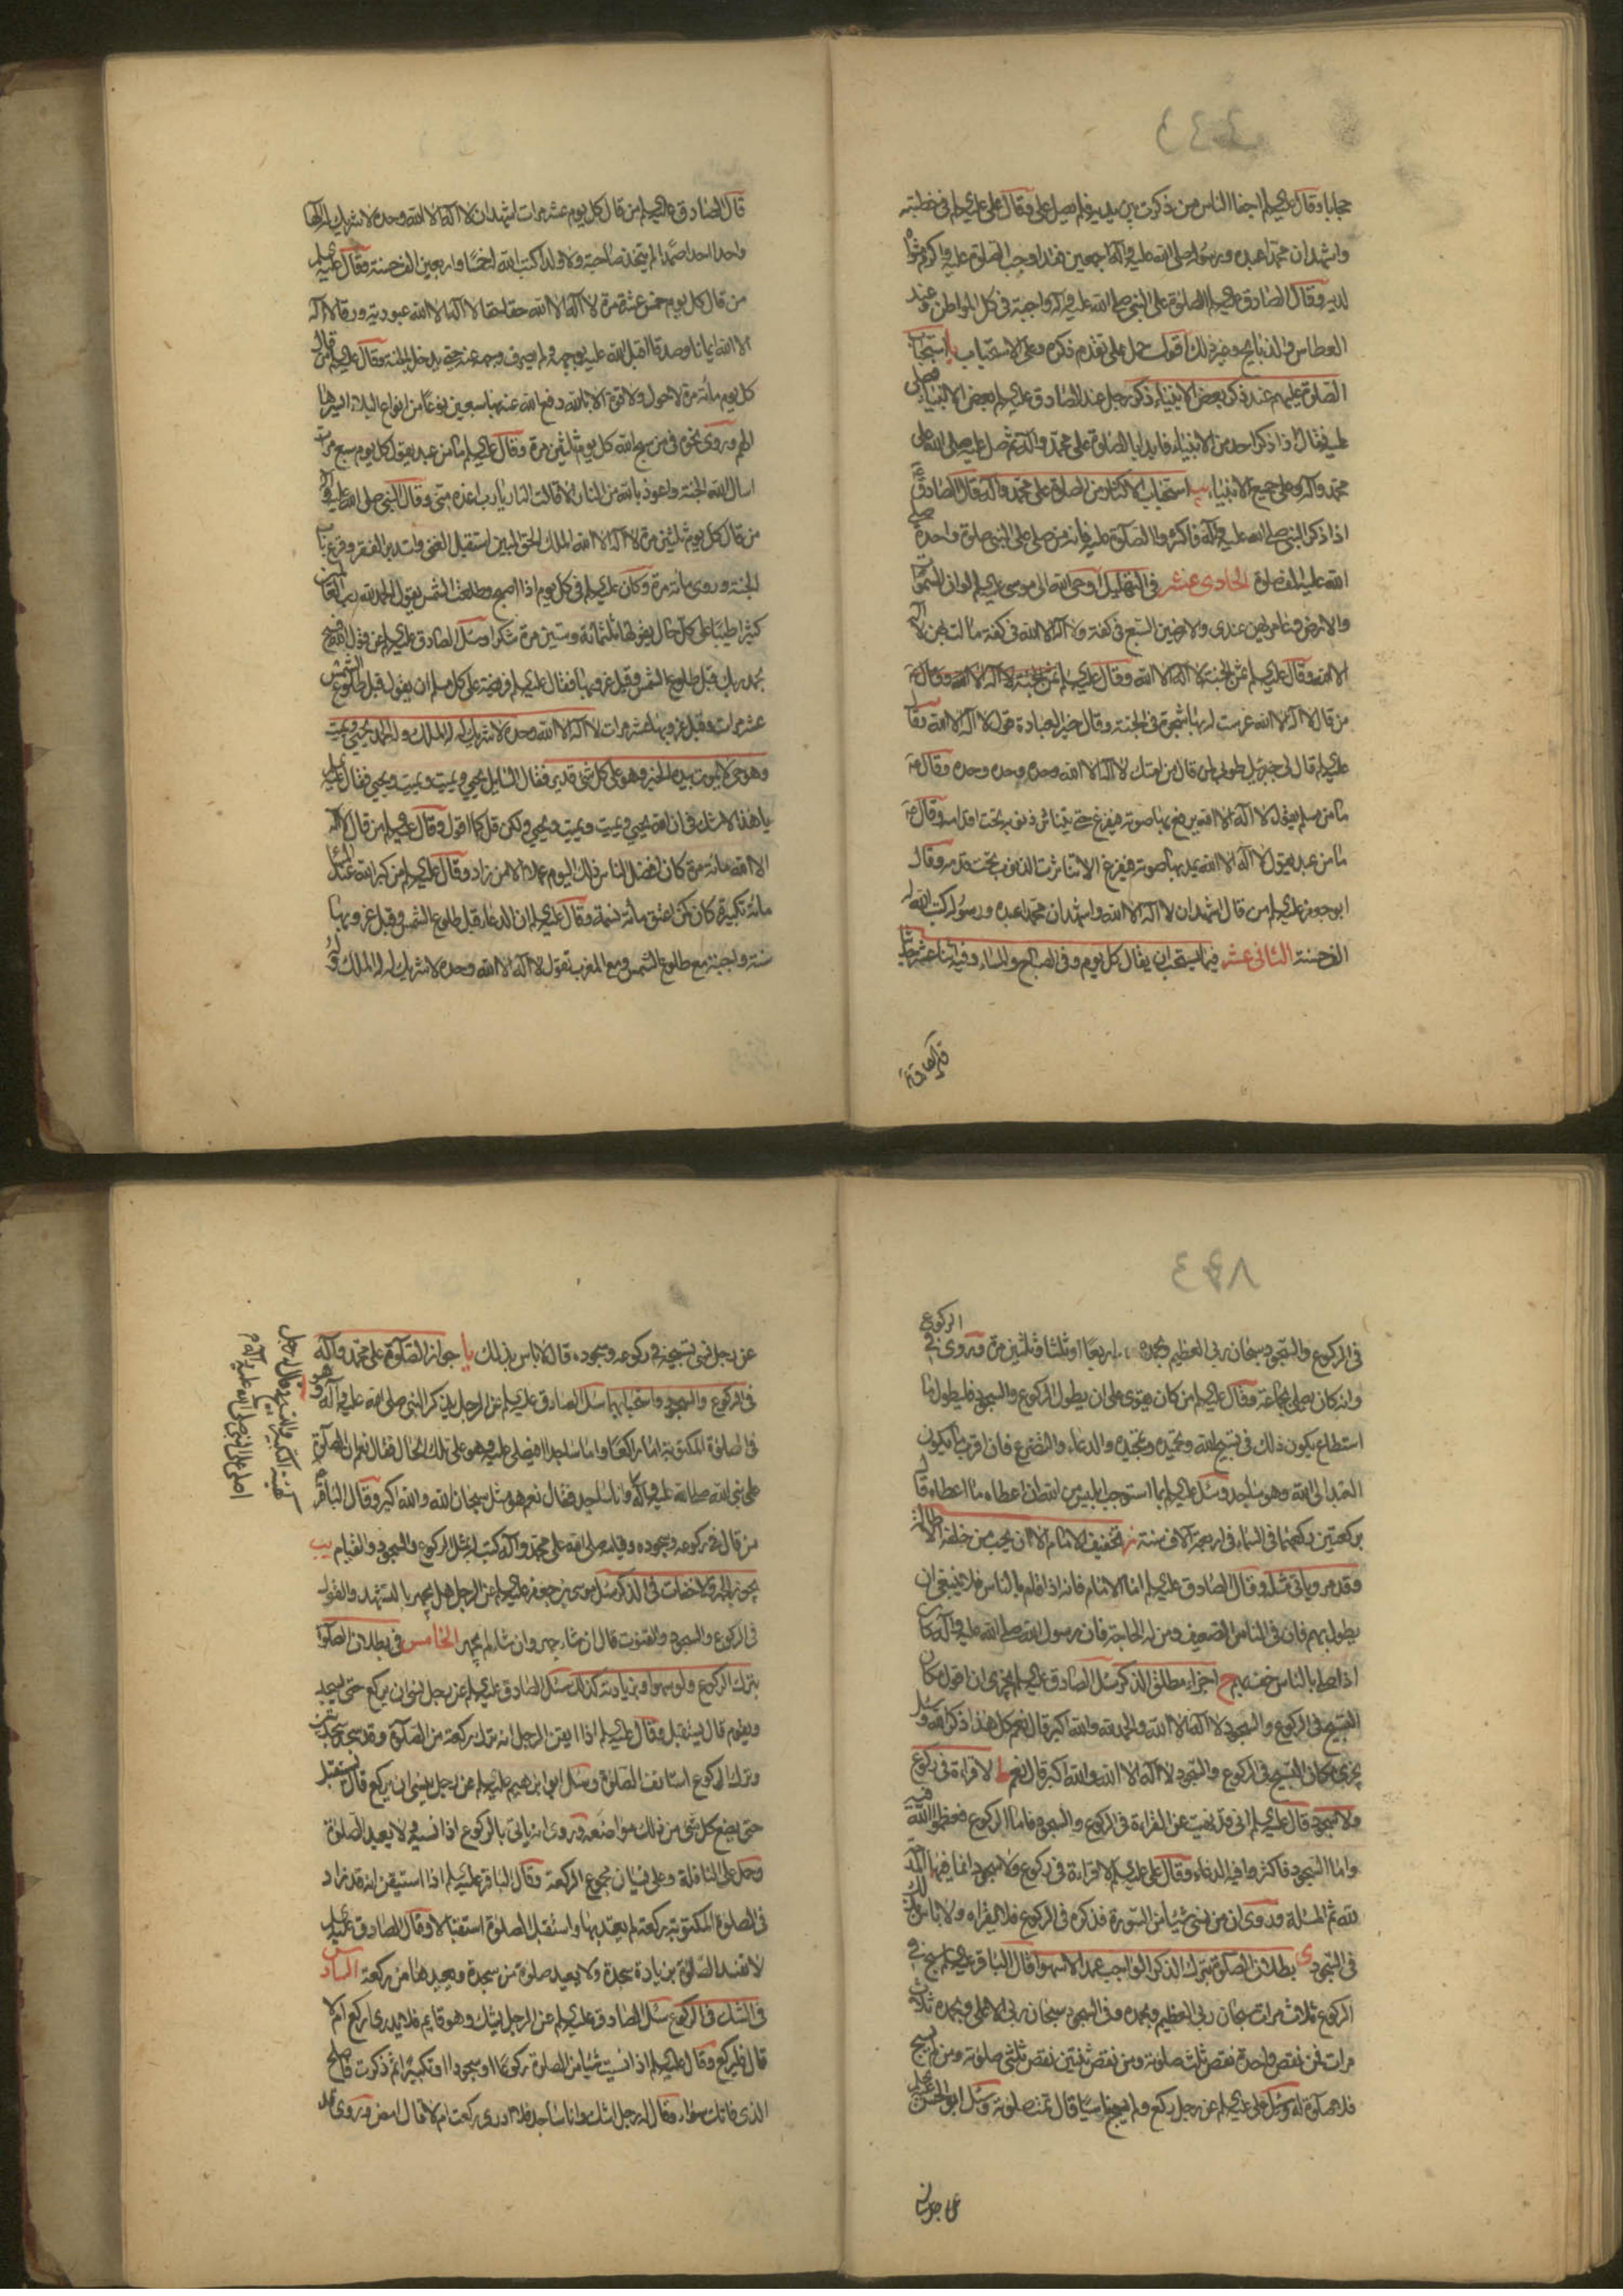 حجابا وقال عليه السلم اجفا الناس من ذكرت بين يديه فلم يصل علي وقال علي عليه السلم في خطبته
واشهد ان محمدا عبده ورسوله صلى الله عليه وآله اجمعين هذا اوجب الصلوة عليه واكرم مثواه
لديه وقال الصادق عليه السلم الصلوة على النبي صلى الله عليه وآله واجبة في كل المواطن وعند
العطاس والذبايح وغير ذلك اقول حمل على تقدم ذكره وعلى الاستحباب يا استحباب
الصلوة عليهم عند ذكر بعض الانبياء ذكر رجل عند الصادق عليه السلم بعض الانبياء فصلى
عليه فقال اذا ذكر احد من الانبياء فابدا بالصلوة على محمد وآله ثم صل عليه صلى الله على
محمد وآله وعلى جميع الانبياء يب استحباب الاكثار من الصلوة على محمد وآله قال الصادق
اذا ذكر النبي صلى الله عليه وآله فاكثروا الصلوة عليه فانه من صلى على النبي صلوة واحدة صلى
الله عليه الف صلوة الحادي عشر في التهليل اوحى الله الى موسى عليه السلم لو ان السموات
والارض وعامريهن عندي والارضين السبع في كفة ولا اله الا الله في كفة مالت بهن لا اله
الا الله وقال عليه السلم ثمن الجنة لا اله الا الله وقال عليه السلم ثمن الجنة لا اله الا الله وقال
من قال لا اله الا الله غرست له بها شجرة في الجنة وقال خير العبادة قول لا اله الا الله وقال
عليه السلم قال لي جبرئيل طوبى لمن قال من امتك لا اله الا الله وحده وحده وحده وقال
ما من مسلم يقول لا اله الا الله يرفع بها صوته فيفرغ حتى يتناثر ذنوبه تحت اقدامه وقال
ما من عبد يقول لا اله الا الله يمد بها صوته فيفرغ الا تناثرت الذنوب تحت قدمه وقال
ابو جعفر عليه السلم من قال اشهد ان لا اله الا الله واشهد ان محمدا عبده ورسوله كتب الله له
الف حسنة الثاني عشر فيما يستحب ان يقال كل يوم وفي الصباح والمساء وفيه اثنا عشر حديثا
قال الصادق
قال الصادق عليه السلم من قال كل يوم عشر مرات اشهد ان لا اله الا الله وحده لا شريك له الها
واحدا احدا صمدا لم يتخذ صاحبة ولا ولدا كتب الله له خمسا واربعين الف حسنة وقال عليه السلم
من قال كل يوم خمس عشرة مرة لا اله الا الله حقا حقا لا اله الا الله عبودية ورقا لا اله
الا الله ايمانا وصدقا اقبل الله عليه بوجهه ولم يصرف وجهه عنه حتى يدخل الجنة وقال عليه السلم من قال
كل يوم مائة مرة لا حول ولا قوة الا بالله دفع الله عنه بها سبعين نوعا من انواع البلاء ايسرها
الهم وروى نحوه في من سبح الله كل يوم ثلثين مرة وقال عليه السلم ما من عبد يقول كل يوم سبع مرات
اسال الله الجنة واعوذ بالله من النار الا قالت النار يا رب اعذه مني وقال النبي صلى الله عليه وآله
من قال كل يوم ثلثين مرة لا اله الا الله الملك الحق المبين استقبل الغنى واستدبر الفقر وقرع باب
الجنة وروى مائة مرة وكان عليه السلم في كل يوم اذا اصبح وطلعت الشمس يقول الحمد لله رب العالمين
كثيرا طيبا على كل حال يقولها ثلثمائة وستين مرة شكرا وسئل الصادق عليه السلم عن قول الله فسبح
بحمد ربك قبل طلوع الشمس وقبل غروبها فقال عليه السلم فريضة على كل مسلم ان يقول قبل طلوع الشمس
عشر مرات وقبل غروبها عشر مرات لا اله الا الله وحده لا شريك له له الملك وله الحمد يحيي ويميت
وهو حي لا يموت بيده الخير وهو على كل شيء قدير فقال السايل يحيي ويميت ويميت ويحيي فقال عليه السلم
يا هذا لا شك في ان الله يحيي ويميت ويميت ويحيي ولكن قل كما اقول وقال عليه السلم من قال لا اله
الا الله مائة مرة كان افضل الناس ذلك اليوم عملا الا من زاد وقال عليه السلم من كبر الله عند المساء
مائة تكبيرة كان كمن اعتق مائة نسمة وقال عليه السلم ان الدعاء قبل طلوع الشمس وقبل غروبها
سنة واجبة مع طلوع الشمس ومع المغرب تقول لا اله الا الله وحده لا شريك له له الملك وله
في الركوع والسجود سبحان ربي العظيم وبحمده اربعا او ثلثا وثلثين مرة وروى في الركوع
وانه كان يصلي بجماعة وقال عليه السلم من كان يقوى على ان يطول الركوع والسجود فليطول ما
استطاع يكون ذلك في تسبيح الله وتحميده وتمجيده والدعاء والتضرع فان اقرب ما يكون
العبد الى الله وهو ساجد وسئل عليه السلم بما استوجب ابليس من الله ان اعطاه ما اعطاه قال
بركعتين ركعهما في السماء في اربعة آلاف سنة ز تخفيف الامام الا ان يحب من خلفه الاطالة
وقد مر وياتي مثله وقال الصادق عليه السلم اما الامام فانه اذا قام بالناس فلا ينبغي ان
يطول بهم فان في الناس الضعيف ومن له الحاجة فان رسول الله صلى الله عليه وآله كان
اذا صلى بالناس خف بهم ح اجزاء مطلق الذكر سئل الصادق عليه السلم يجزي ان اقول مكان
التسبيح في الركوع والسجود لا اله الا الله والحمد لله والله اكبر قال نعم كل هذا ذكر الله وسئل
يجزي مكان التسبيح في الركوع والسجود لا اله الا الله والله اكبر قال نعم ط لا قراءة في ركوع
ولا سجود قال عليه السلم اني قد نهيت عن القراءة في الركوع والسجود فاما الركوع فعظموا الله فيه
واما السجود فاكثروا فيه الدعاء وقال علي عليه السلم لا قراءة في ركوع ولا سجود انما فيهما المدحة
لله ثم المسئلة وروى ان من نسي شيئا من السورة فذكره في الركوع فلا يقراه ولا باس بذلك
في السجود ي بطلان الصلوة بترك الذكر الواجب عمدا لا سهوا قال الباقر عليه السلم سبح في
الركوع ثلاث مرات سبحان ربي العظيم وبحمده وفي السجود سبحان ربي الاعلى وبحمده ثلاث
مرات فمن نقص واحدة نقص ثلث صلوته ومن نقص ثنتين نقص ثلثي صلوته ومن لم يسبح
فلا صلوة له وسئل علي عليه السلم عن رجل ركع ولم يسبح ناسيا قال تمت صلوته وسئل ابو الحسن عليه السلم
عن رجل نسي
عن رجل نسي تسبيحه في ركوعه وسجوده قال لا باس بذلك يا جواز الصلوة على محمد وآله
في الركوع والسجود واستحبابها سئل الصادق عليه السلم عن الرجل يذكر النبي صلى الله عليه وآله وهو
في الصلوة المكتوبة اما راكعا واما ساجدا فيصلي عليه وهو على تلك الحال فقال نعم ان الصلوة
على نبي الله صلى الله عليه وآله كهيئة التكبير والتسبيح وقال له رجل
اصلي على النبي صلى الله عليه وآله وانا ساجد فقال نعم هو مثل سبحان الله والله اكبر وقال الباقر
من قال في ركوعه وسجوده وقيامه صلى الله على محمد وآله كتب له مثل الركوع والسجود والقيام يب
يجوز الجهر والاخفات في الذكر سئل موسى بن جعفر عليه السلم عن الرجل هل يجهر بالتشهد والقول
في الركوع والسجود والقنوت قال ان شاء جهر وان شاء لم يجهر الخامس في بطلان الصلوة
بترك الركوع ولو سهوا وبزيادته كذلك سئل الصادق عليه السلم عن رجل نسي ان يركع حتى يسجد
ويقوم قال يستقبل وقال عليه السلم اذا ايقن الرجل انه ترك ركعة من الصلوة وقد سجد سجدتين
وترك الركوع استانف الصلوة وسئل ابو ابرهيم عليه السلم عن رجل ينسى ان يركع قال يستقبل
حتى يضع كل شيء من ذلك مواضعه وروى انه ياتي بالركوع اذا نسيه ولا يعيد الصلوة
وحمل على النافلة وعلى نسيان مجموع الركعة وقال الباقر عليه السلم اذا استيقن انه قد زاد
في الصلوة المكتوبة ركعة لم يعتد بها واستقبل الصلوة استقبالا وقال الصادق عليه السلم
لا تفسد الصلوة بزيادة سجدة ولا يعيد صلوة من سجدة ويعيدها من ركعة السادس
في الشك في الركوع سئل الصادق عليه السلم عن الرجل يشك وهو قايم فلا يدري اركع ام لا
قال فليركع وقال عليه السلم اذا نسيت شيئا من الصلوة ركوعا او سجودا او تكبيرا ثم ذكرت فاصنع
الذي فاتك سواء وقال له رجل اشك وانا ساجد فلا ادري ركعت ام لا قال امض وروى